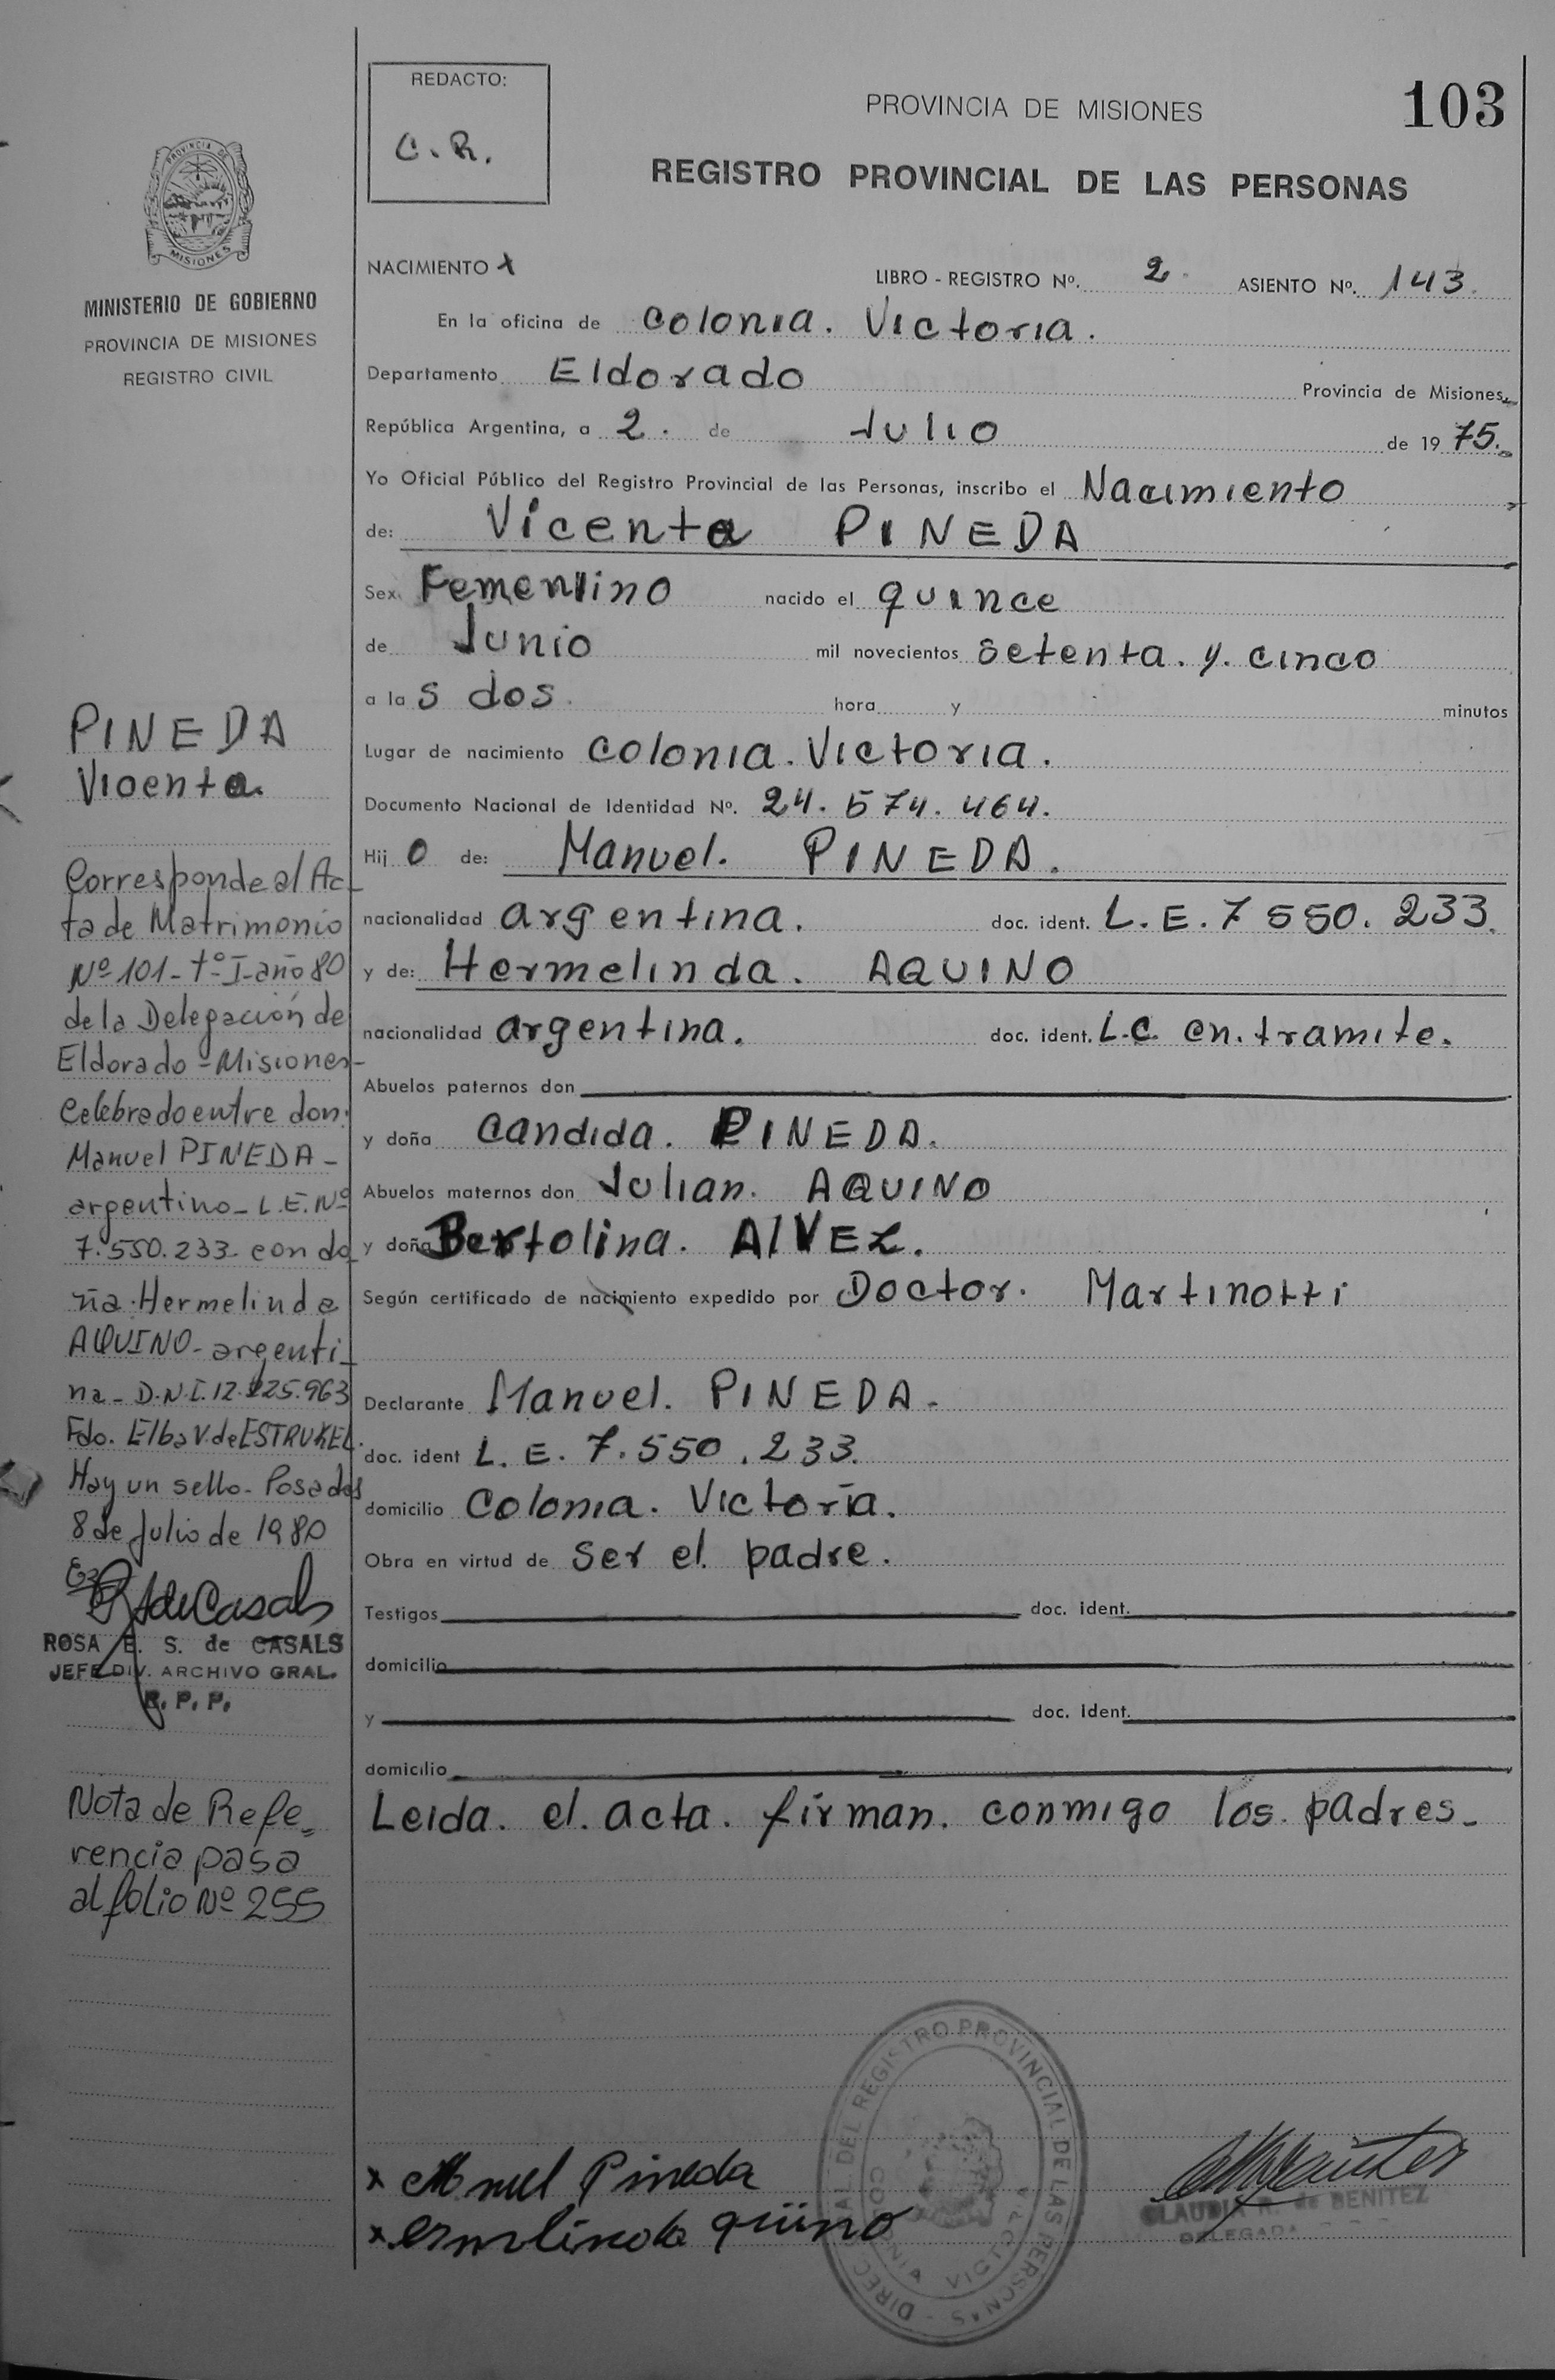 REDACTO:
C. R.
PROVINCIA DE MISIONES
103
REGISTRO PROVINCIAL DE LAS PERSONAS
MISIONES
MINISTERIO DE GOBIERNO
PROVINCIA DE MISIONES
REGISTRO CIVIL
NACIMIENTO x LIBRO - REGISTRO Nº. 2 ASIENTO Nº. 143.
En la oficina de Colonia. Victoria.
Departamento Eldorado Provincia de Misiones,
República Argentina, a 2. de Julio de 1975.
Yo Oficial Público del Registro Provincial de las Personas, inscribo el Nacimiento
de: Vicenta PINEDA
Sex. Femenino nacido el quince
de Junio mil novecientos setenta. y. cinco
a las dos. hora y minutos
Lugar de nacimiento Colonia. Victoria.
Documento Nacional de Identidad Nº. 24. 574. 464.
Hij o de: Manuel. PINEDA.
nacionalidad argentina. doc. ident. L. E. 7 550. 233.
y de: Hermelinda. AQUINO
nacionalidad argentina. doc. ident. L.C. en. tramite.
Abuelos paternos don
y doña Candida. PINEDA.
Abuelos maternos don Julian. AQUINO
y doña Bertolina. AlVEZ.
Según certificado de nacimiento expedido por Doctor. Martinotti
Declarante Manuel. PINEDA.
doc. ident L. E. 7. 550 . 233.
domicilio Colonia. Victoria.
Obra en virtud de ser el. padre.
Testigos doc. ident.
domicilio
y doc. Ident.
domicilio
Leida. el. acta. firman. conmigo los. padres.
PINEDA
Vicenta.
Corresponde al Ac-
ta de Matrimonio
Nº 101- tº I- año 80
de la Delegación de
Eldorado - Misiones-
Celebrado entre don:
Manuel PINEDA -
argentino - L.E. Nº
7.550.233 con do
ña Hermelinda
AQUINO - argenti-
na - D.N.I. 12.225.963
Fdo. Elba V. de ESTRUKEL.
Hay un sello - Posadas
8 de Julio de 1980
ROSA E. S. de CASALS
JEFE DIV. ARCHIVO GRAL.
R. P. P.
Nota de Refe-
rencia pasa
al folio Nº 255
x Manuel Pineda
x ermelinda quino
DIREC AL DEL REGISTRO PROVINCIAL DE LAS PERSONAS
COLONIA VICTORIA
CLAUDIA R. de BENITEZ
DELEGADA